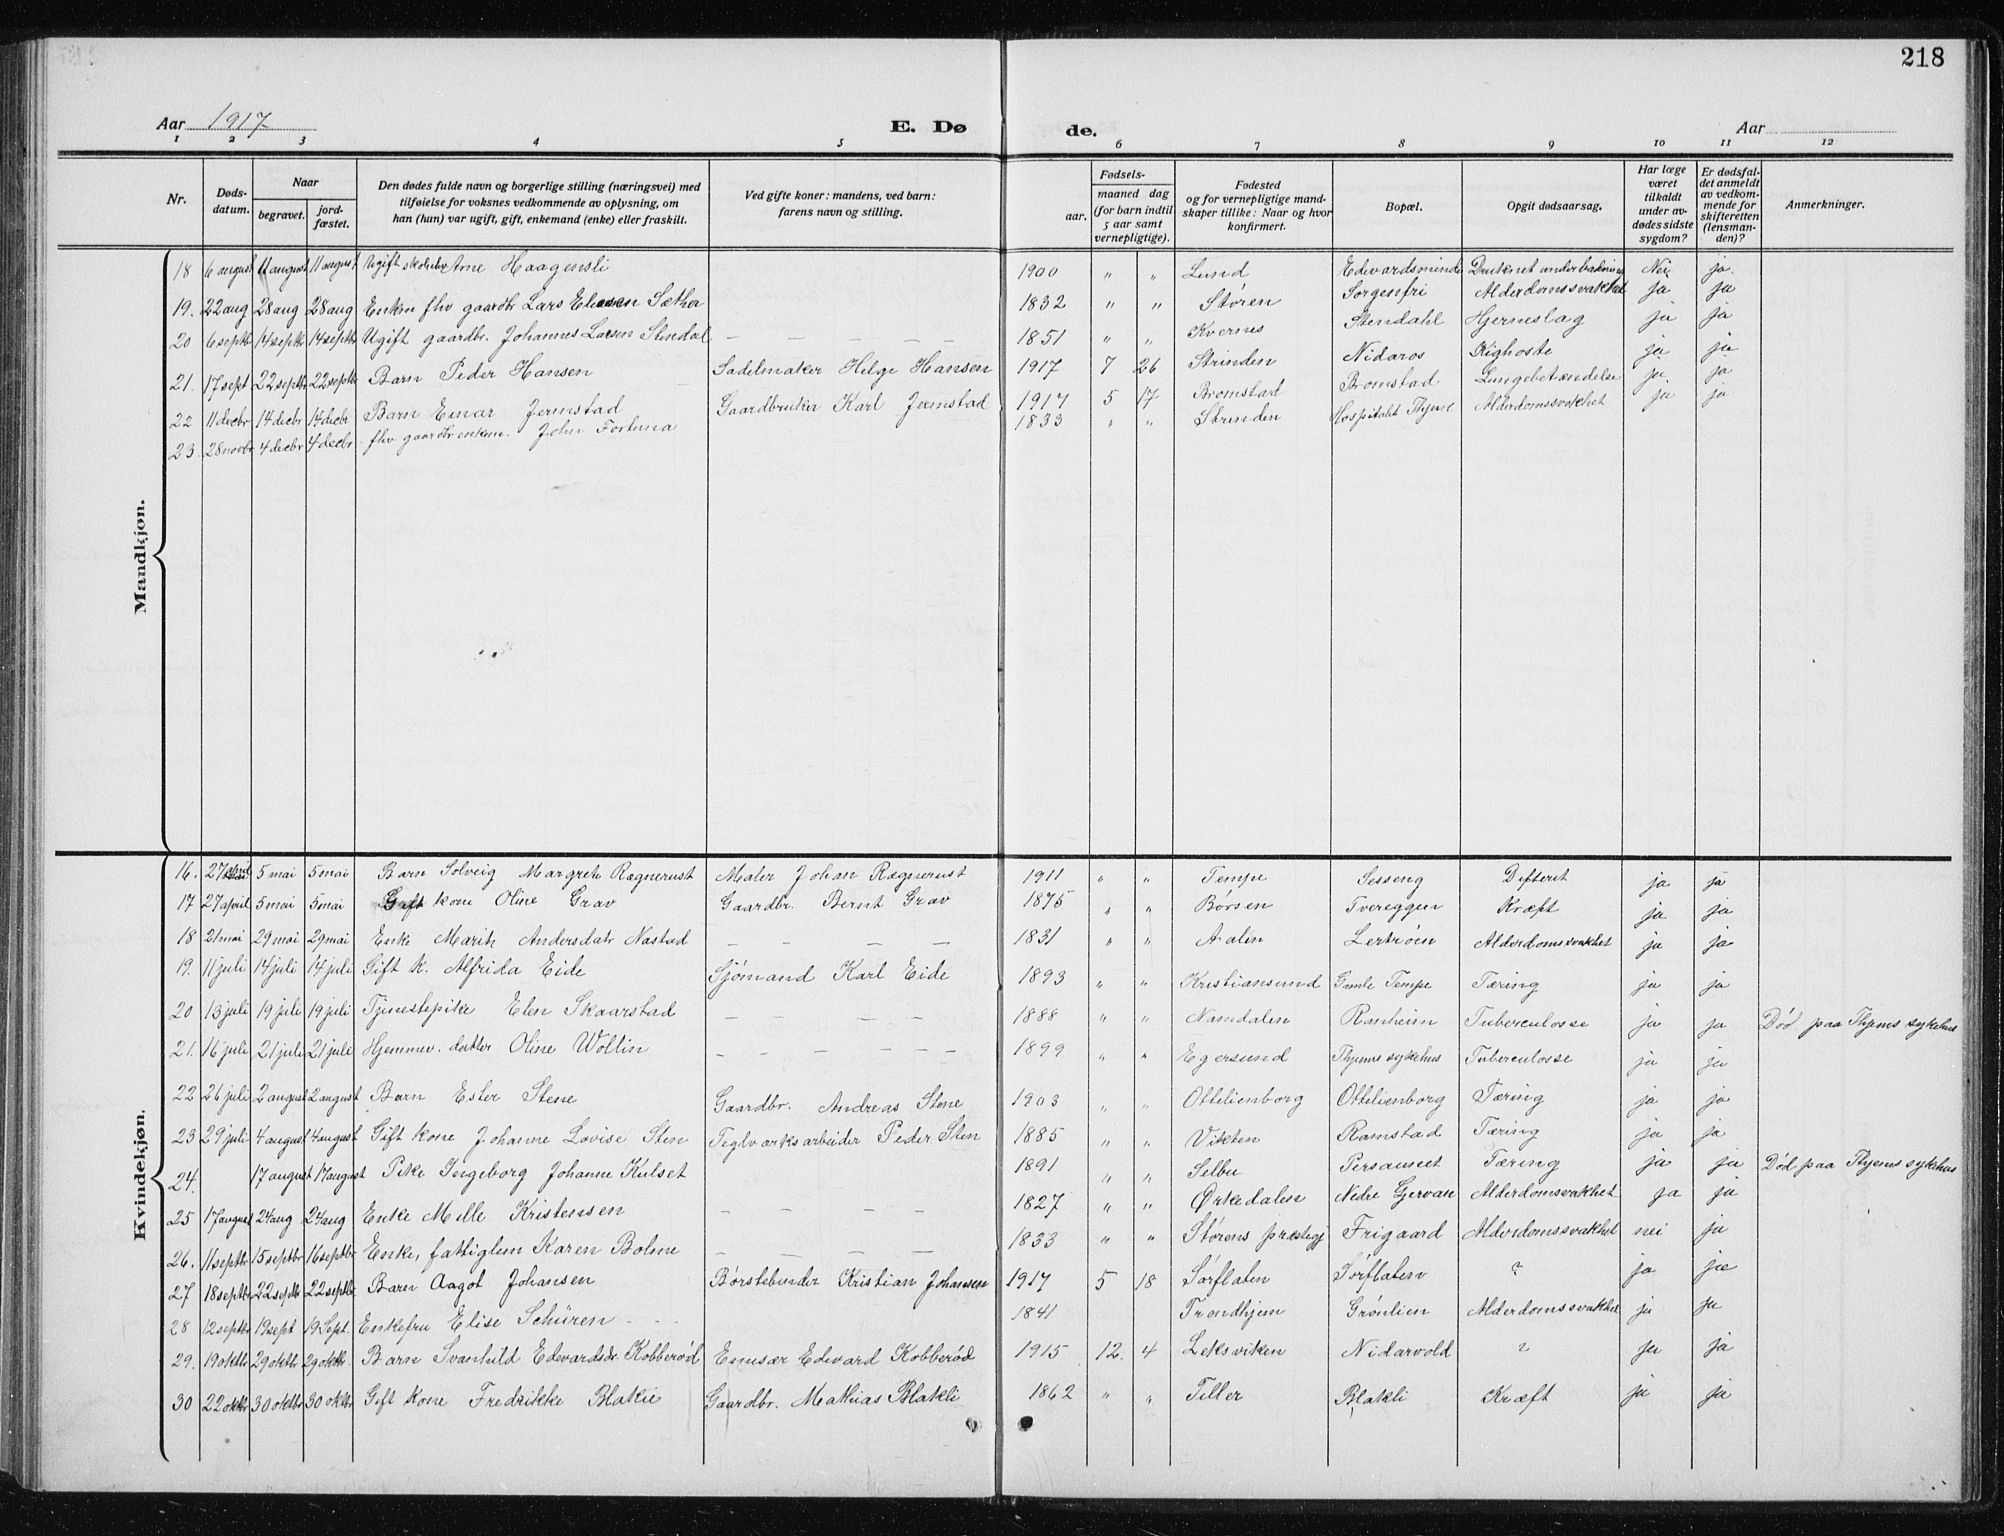 218
Aar 1917 E. Dø de. Aar
1 2 3 4 5 6 7 8 9 10 11 12
Nr. Døds-datum. Naar begravet. jord-fæstet. Den dødes fulde navn og borgerlige stilling (næringsvei) med tilføielse for voksnes vedkommende av oplysning, om han (hun) var ugift, gift, enkemand (enke) eller fraskilt. Ved gifte koner: mandens, ved barn: farens navn og stilling. Fødsels- aar. maaned dag (for barn indtil 5 aar samt vernepligtige). Fødested og for vernepligtige mand-skaper tillike: Naar og hvor konfirmert. Bopæl. Opgit dødsaarsag. Har læge været tilkaldt under av-dødes sidste sygdom? Er dødsfal-det anmeldt av vedkom-mende for skifteretten (lensman-den)? Anmerkninger.
Mandkjøn.
18 6 august 11 august 11 august Ugift Arne Haagensli 1900 " " Lund Edvardsminde Druknet under badning Nei ja.
19. 22 aug 28 aug 28 aug Enkm fhv gaardbr Lars Elesen Sæther 1832 " " Støren Sorgenfri Alderdomssvakhet ja ja
20 6 septbr 14 septbr 14 septbr Ugift gaardbr. Johannes Larsen Stendal — — — — — 1851 " " Kvernes Stendahl Hjerneslag ja ja
21. 17 sept 22 septbr 22 septbr Barn Peder Hansen Sadelmaker Helge Hansen 1917 7 26 Strinden Nidaros Kighoste ja ja
22 11 decbr 14 decbr 14 decbr Barn Einar Jermstad Gaardbruker Karl Jermstad 1917 5 17 Bromstad Bromstad Lungebetændelse ja. ja
23. 28 novbr 4 decbr 4 decbr fhv gaardbr enkm. John Fortuna 1833 " " Strinden Hospitalet Thjem Alderdomssvakhet ja ja
Kvindekjøn.
16. 27 april 5 mai 5 mai Barn Solveig Margrete Ragnerust Maler Johan Ragnerust 1911 " " Tempe Sesseng Difterit ja ja
17 27 april 5 mai 5 mai Gift kone Oline Grav Gaardbr. Bernt Grav 1875 " " Børsen Tvereggen Kræft ja ja
18 21 mai 29 mai 29 mai Enke Marit Andersdatr Nastad — — — — — 1831 " " Aalen Lertrøen Alderdomssvakhet ja ja
19. 11 juli 14 juli 14 juli Gift k. Alfrida Eide Sjømand Karl Eide 1893 " " Kristiansund Gamle Tempe Tæring ja ja
20 13 juli 19 juli 19 juli Tjenestepike Elen Skaarstad — — — — — 1888 " " Namdalen Ranheim Tuberculosse ja ja Død paa Thjems sykehus
21. 16 juli 21 juli 21 juli Hjemmev. datter Oline Wollin — — — — — — 1899 " " Egersund Thjems sykehus Tuberculosse ja ja
22 26 juli 2 august 2 august Barn Ester Stene Gaardbr. Andreas Stene 1903 " " Ottilienborg Ottilienborg Tæring ja ja
23 29 juli 4 august 4 august Gift kone Johanne Lovise Sten Teglværksarbeider Peder Sten 1885 " " Vikten Ramstad Tæring ja ja
24. 17 august 17 august Pike Ingeborg Johanne Kulset 1891 " " Selbu Persauneet Tæring ja ja Død paa Thjems sykehus
25 17 august 24 aug 24 aug Enke Mille Kristensen — — — — 1827 " " Ørkedalen Nedre Gjervan Alderdomsvakhet ja ja
26. 11 septbr 15 septbr 16 septbr Enke, fattiglem Karen Bolme — — — — — 1833 " " Størens præstegj Frigaard Alderdomssvakhet nei ja
27 18 septbr 22 septbr 22 septbr Barn Aagot Johansen Børstebinder Kristian Johansen 1917 5 18 Sørflaten Sørflaten ? ja ja
28 12 septbr 19 sept 19 Sept. Enkefru Elise Schüren - - - 1841 Trondhjem Grønlien Alderdomssvakhet ja ja
29. 19 oktbr 29 oktbr 29 oktbr. Barn Svanhild Edvardsdr. Kobberød Emisær Edvard Kobberød 1915 12. 4 Leksviken Nidarvold ? ja ja
30 22 oktbr 30 oktbr 30 oktbr Gift kone Fredrikke Blakli Gaardbr. Mathias Blakli 1862 " " Tiller Blakli Kræft ja ja